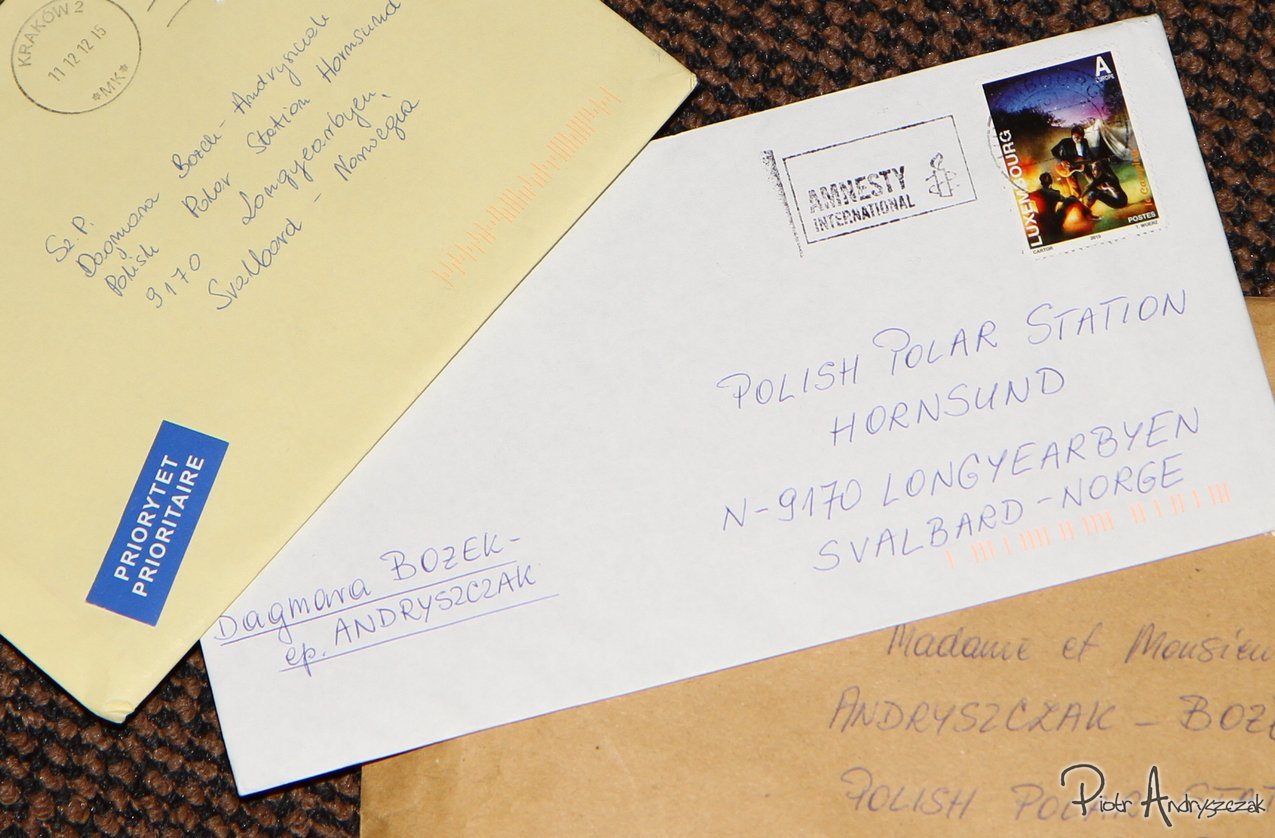 KRAKÓW 2
11 12 12 15
*MK*
Sz P.
Dagmara Bozek-Andryszczak
Polish Polar Station Hornsund
9170 Longyearbyen,
Svalbard - Norwegia
PRIORYTET
PRIORITAIRE
AMNESTY
INTERNATIONAL
A
EUROPE
LUXEMBOURG
POSTES
CARTOR 2015 T. WUERZ
POLISH POLAR STATION
HORNSUND
N-9170 LONGYEARBYEN
SVALBARD - NORGE
Dagmara BOZEK-
ep. ANDRYSZCZAK
Madame et Monsieu
ANDRYSZCZAK - BOZE
POLISH POLAR STAT
Piotr Andryszczak